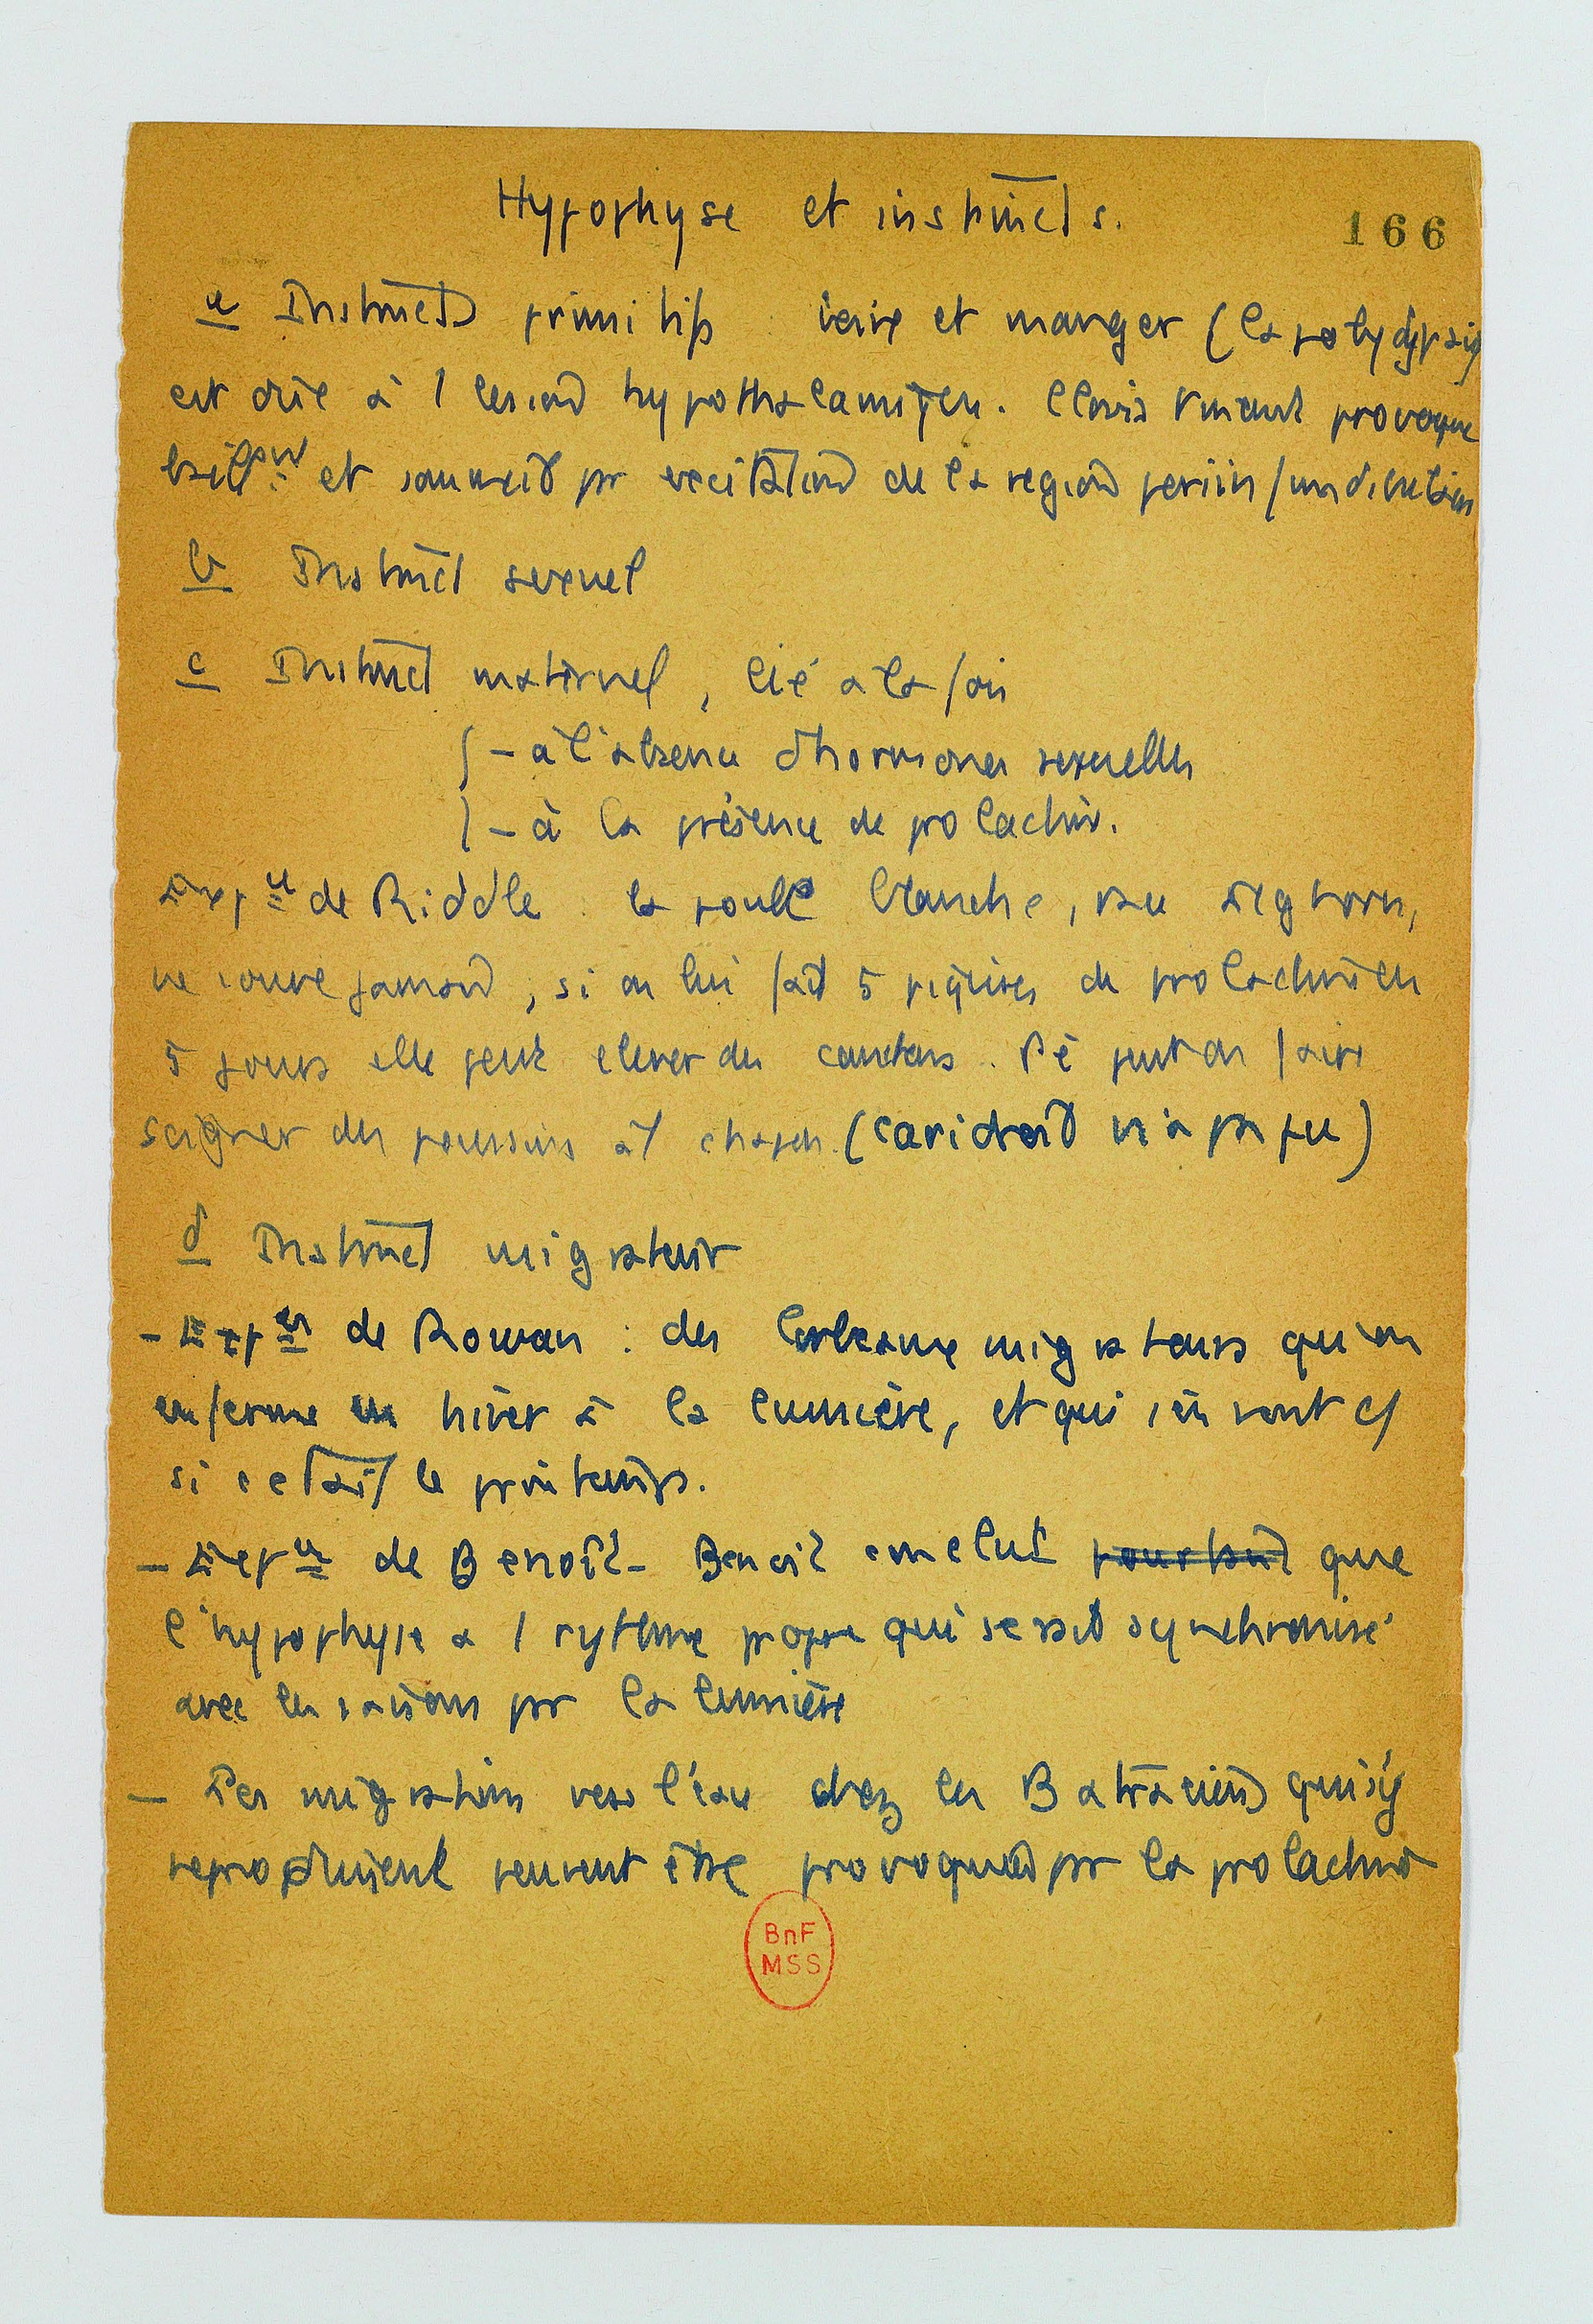 Hypophyse et instincts.
166
a Instincts primitifs boire et manger (la polydypsie
est dûe à 1 lesion hypothalamique. Clovis Vincent provoque
et sommeil pr excitation de la region periinfundibulaire
b Instinct sexuel
c Instinct maternel, lié à la fois
- à l'absence d'hormones sexuelles
- à la présence de prolactine.
Expce de Riddle : la poule blanche, race Leghorn,
ne couve jamais, si on lui fait 5 piqûres de prolactine en
5 jours elle peut elever des canetons. De même peut on faire
soigner des poussins à 1 chapon. (Caridroit n'a pas pu)
d Instinct migrateur
- Expces de Rowan : des corbeaux migrateurs qu'on
enferme en hiver à la lumière, et qui s'en vont c/
si cetait le printemps.
- Expces de Benoît - Benoit conclut pourtant que
l'hypophyse a 1 rythme propre qui serait synchronisé
avec les saisons pr la lumière
- Les migrations vers l'eau chez les Batraciens qui s'y
reproduisent peuvent être provoquées pr la prolactine
BnF
MSS